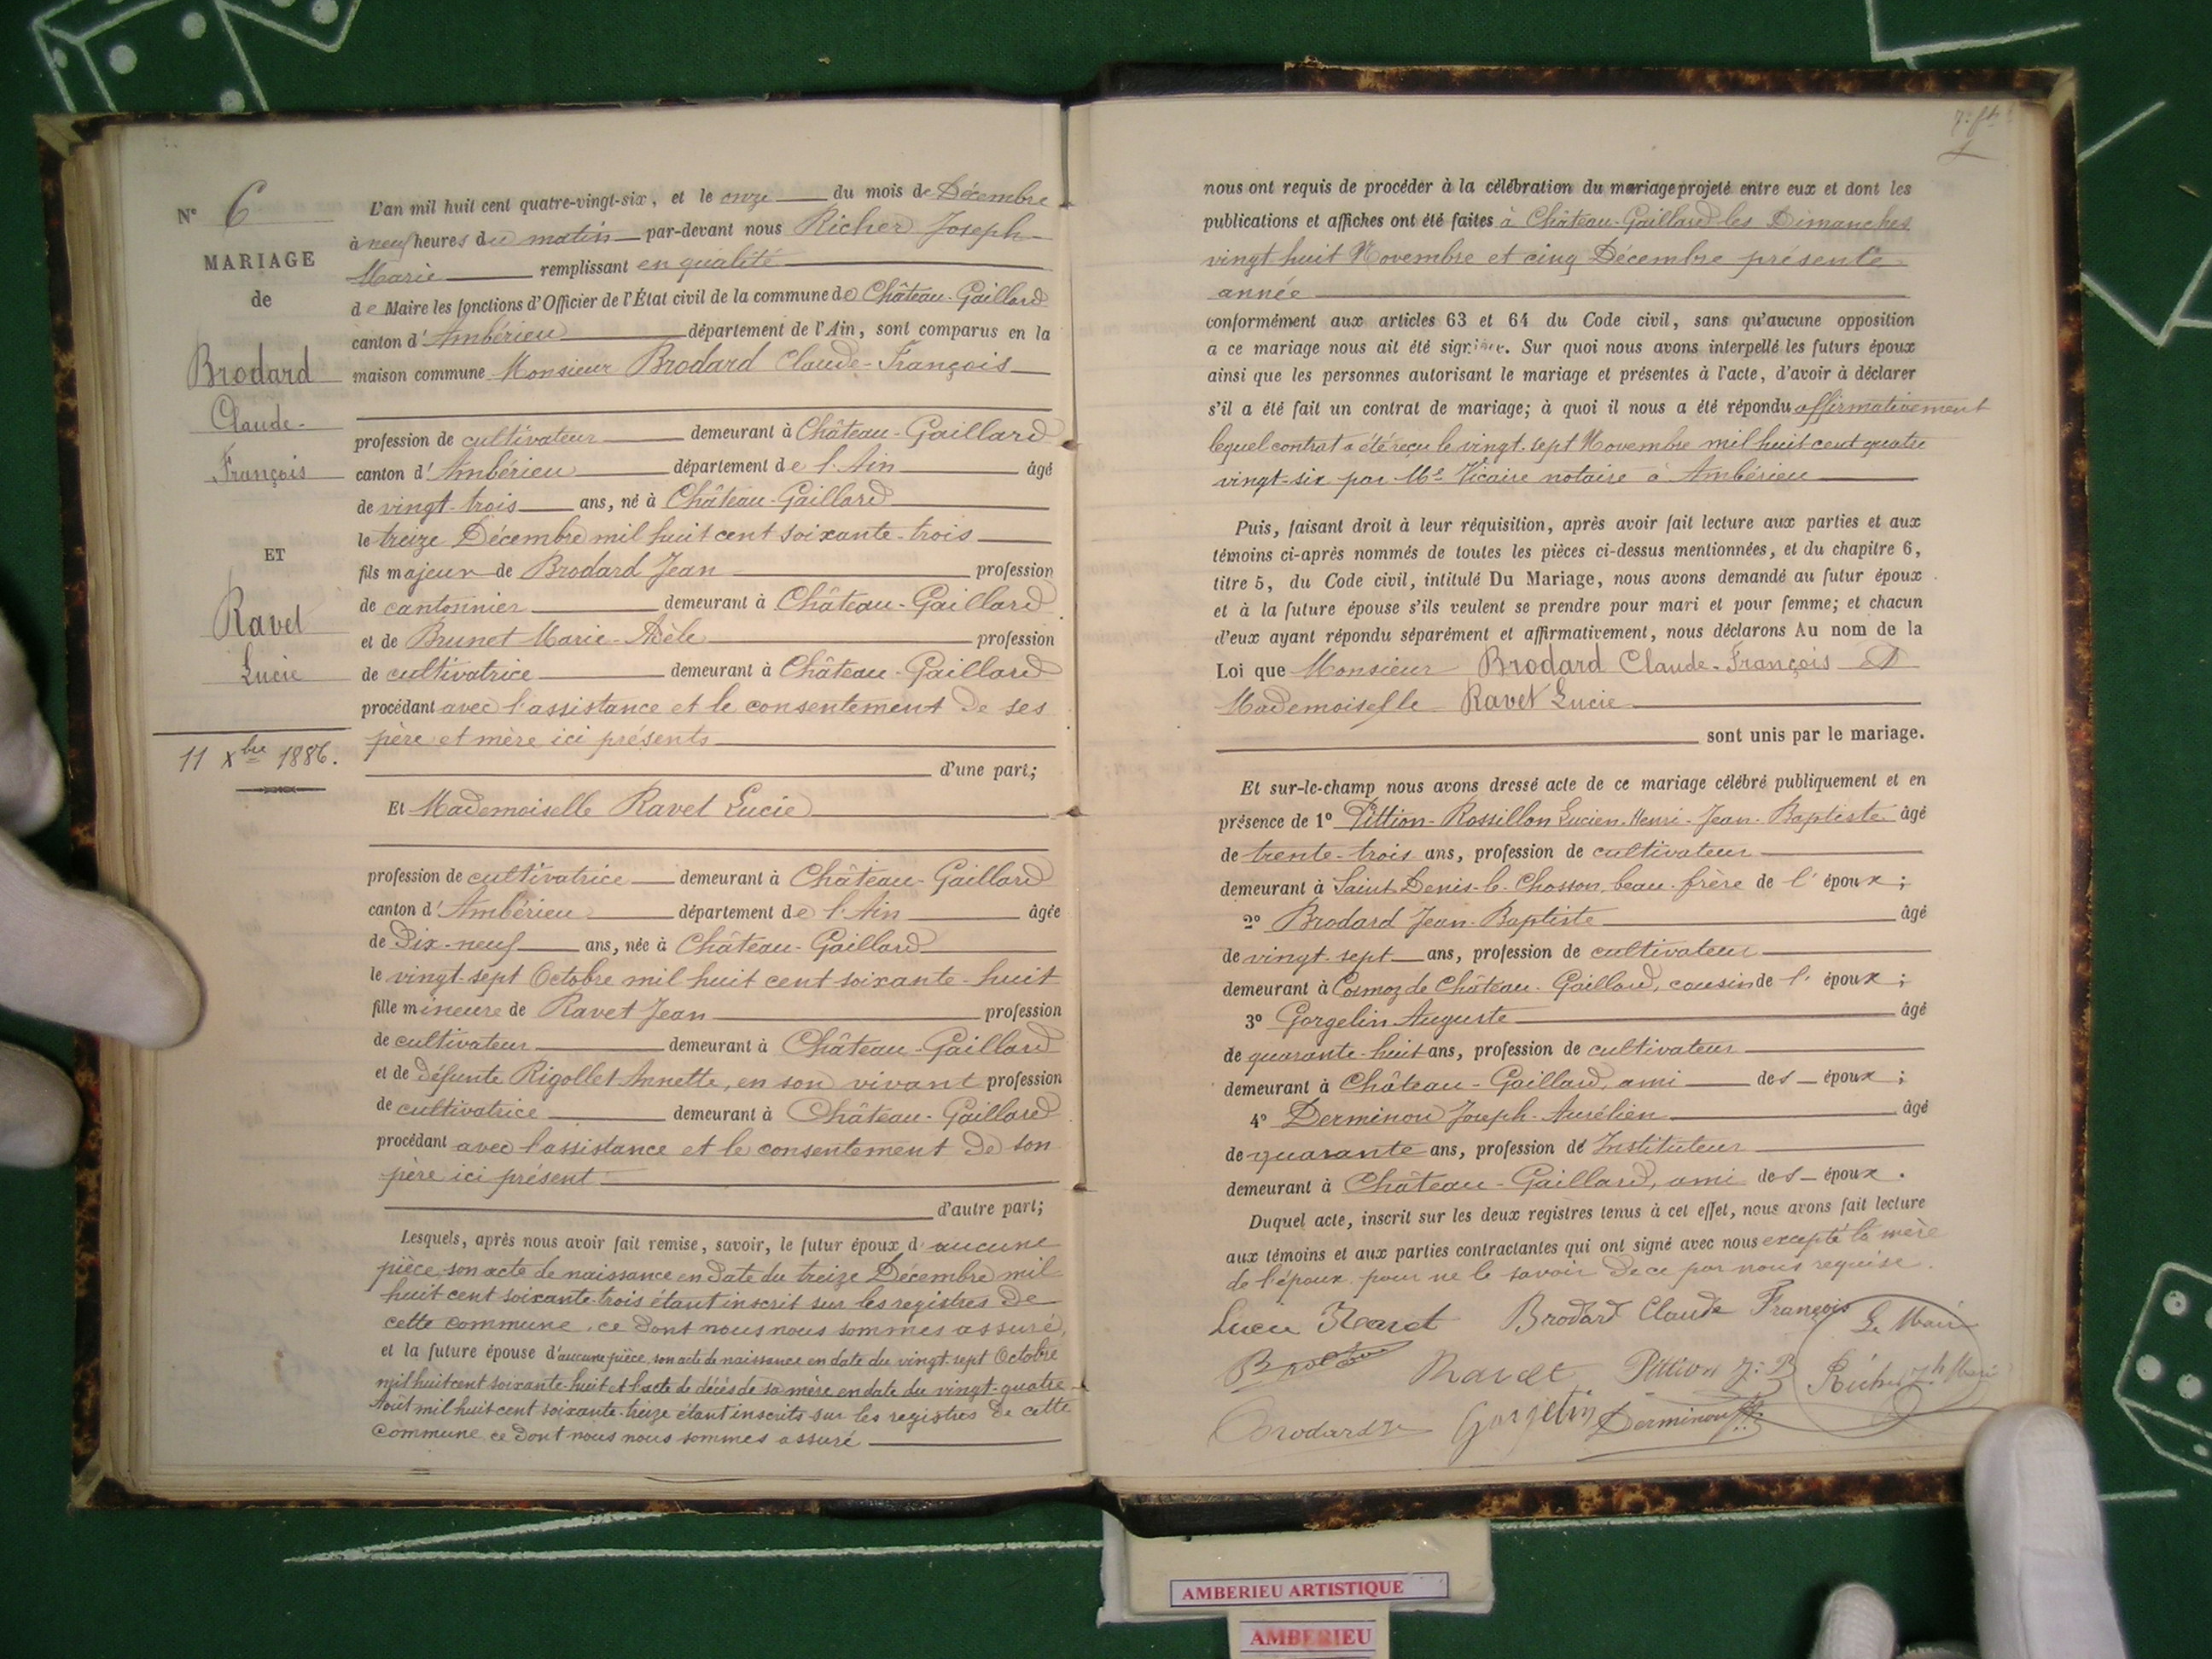 N° 6
MARIAGE
de
Brodard
Claude-
François
ET
Ravet
Lucie
11 Xbre 1886.
L'an mil huit cent quatre-vingt-six, et le onze du mois de Décembre
à neuf heures du matin par-devant nous Richer Joseph-
Marie remplissant en qualité
de Maire les fonctions d'Officier de l'État civil de la commune de Château-Gaillard
canton d'Ambérieu département de l'Ain, sont comparus en la
maison commune Monsieur Brodard Claude-François
profession de cultivateur demeurant à Château-Gaillard
canton d'Ambérieu département de l'Ain âgé
de vingt-trois ans, né à Château-Gaillard
le treize Décembre mil huit cent soixante-trois
fils majeur de Brodard Jean profession
de cantonnier demeurant à Château-Gaillard
et de Brunet Marie-Adèle profession
de cultivatrice demeurant à Château-Gaillard
procédant avec l'assistance et le consentement de ses
père et mère ici présents
d'une part;
Et Mademoiselle Ravet Lucie
profession de cultivatrice demeurant à Château-Gaillard
canton d'Ambérieu département de l'Ain âgée
de Dix-neuf ans, née à Château-Gaillard
le vingt-sept Octobre mil huit cent soixante-huit
fille mineure de Ravet Jean profession
de cultivateur demeurant à Château-Gaillard
et de défunte Rigollet Annette, en son vivant profession
de cultivatrice demeurant à Château-Gaillard
procédant avec l'assistance et le consentement de son
père ici présent
d'autre part;
Lesquels, après nous avoir fait remise, savoir, le futur époux d'aucune
pièce, son acte de naissance en date du treize Décembre mil
huit cent soixante-trois étant inscrit sur les registres de
cette commune, ce dont nous nous sommes assuré,
et la future épouse d'aucune pièce, son acte de naissance en date du vingt-sept Octobre
mil huit cent soixante-huit et l'acte de décès de sa mère en date du vingt-quatre
Août mil huit cent soixante-treize étant inscrits sur les registres de cette
commune ce dont nous nous sommes assuré
nous ont requis de procéder à la célébration du mariage projeté entre eux et dont les
publications et affiches ont été faites à Château-Gaillard les Dimanches
vingt huit Novembre et cinq Décembre présente
année
conformément aux articles 63 et 64 du Code civil, sans qu'aucune opposition
a ce mariage nous ait été signifiée. Sur quoi nous avons interpellé les futurs époux
ainsi que les personnes autorisant le mariage et présentes à l'acte, d'avoir à déclarer
s'il a été fait un contrat de mariage; à quoi il nous a été répondu affirmativement
lequel contrat a été reçu le vingt-sept Novembre mil huit cent quatre
vingt-six par Me Vicaire notaire à Ambérieu
Puis, faisant droit à leur réquisition, après avoir fait lecture aux parties et aux
témoins ci-après nommés de toutes les pièces ci-dessus mentionnées, et du chapitre 6,
titre 5, du Code civil, intitulé Du Mariage, nous avons demandé au futur époux
et à la future épouse s'ils veulent se prendre pour mari et pour femme; et chacun
d'eux ayant répondu séparément et affirmativement, nous déclarons Au nom de la
Loi que Monsieur Brodard Claude-François et
Mademoiselle Ravet Lucie
sont unis par le mariage.
Et sur-le-champ nous avons dressé acte de ce mariage célébré publiquement et en
présence de 1° Pittion-Rossillon Lucien-Henri-Jean-Baptiste âgé
de trente-trois ans, profession de cultivateur
demeurant à Saint-Denis-le-Chosson, beau-frère de l'époux;
2° Brodard Jean-Baptiste âgé
de vingt-sept ans, profession de cultivateur
demeurant à Cormoz de Château-Gaillard, cousin de l'époux;
3° Gorgelin Auguste âgé
de quarante-huit ans, profession de cultivateur
demeurant à Château-Gaillard, ami des époux;
4° Derminon Joseph-Aurélien âgé
de quarante ans, profession de Instituteur
demeurant à Château-Gaillard, ami des époux.
Duquel acte, inscrit sur les deux registres tenus à cet effet, nous avons fait lecture
aux témoins et aux parties contractantes qui ont signé avec nous excepté la mère
de l'époux pour ne le savoir de ce par nous requise.
Lucie Ravet Brodard Claude François Le Maire
Ravet Pittion J.B Richer Jh Marie
Brodard Gorgelin Derminon
AMBERIEU ARTISTIQUE
AMBERIEU